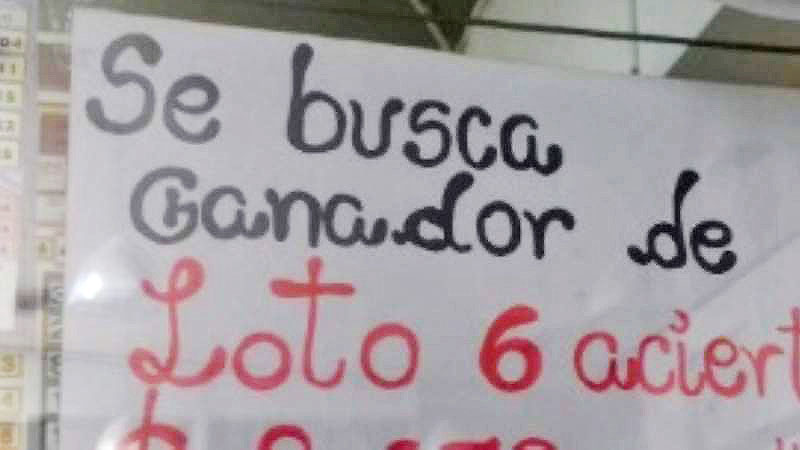 Se busca
Ganador de
Loto 6 aciert